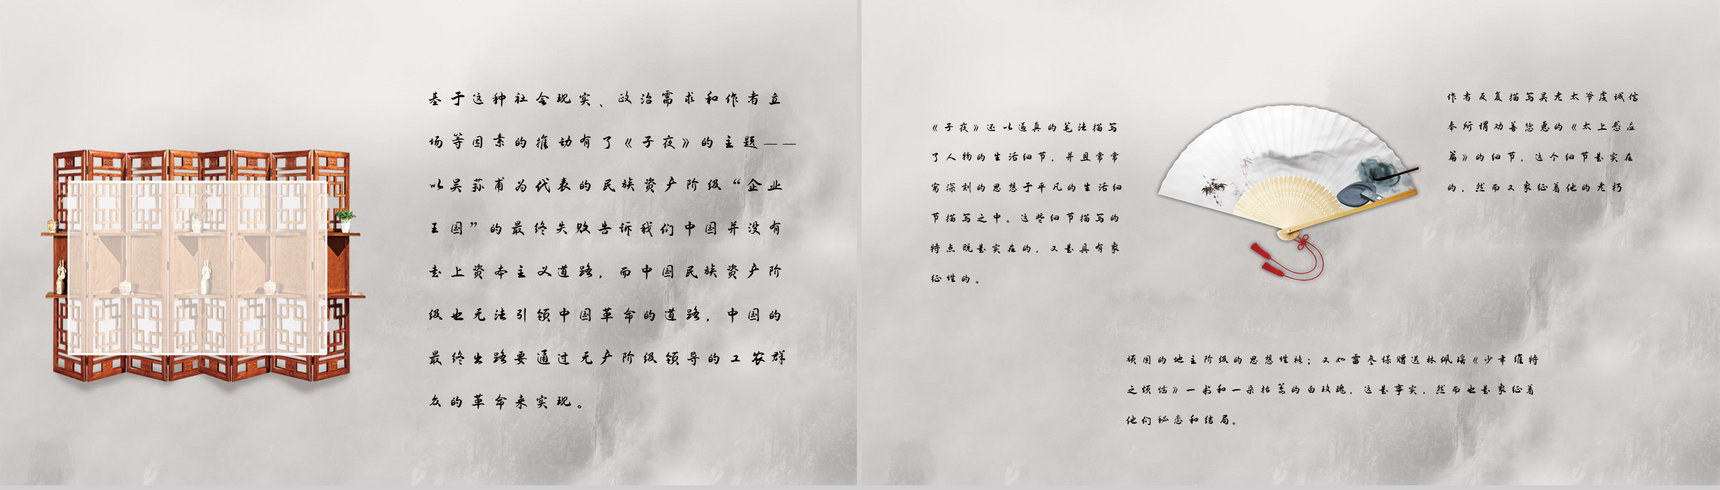 基于这种社会现实、政治需求和作者立
场等因素的推动有了《子夜》的主题——
以吴荪甫为代表的民族资产阶级“企业
王国”的最终失败告诉我们中国并没有
走上资本主义道路，而中国民族资产阶
级也无法引领中国革命的道路，中国的
最终出路要通过无产阶级领导的工农群
众的革命来实现。
《子夜》还以逼真的笔法描写
了人物的生活细节，并且常常
寓深刻的思想于平凡的生活细
节描写之中。这些细节描写的
特点既是实在的，又是具有象
征性的。
作者反复描写吴老太爷虔诚信
奉所谓劝善惩恶的《太上感应
篇》的细节，这个细节是实在
的，然而又象征着他的老朽
顽固的地主阶级的思想性格；又如雷参谋赠送林佩瑶《少年维特
之烦恼》一书和一朵枯萎的白玫瑰，这是事实，然而也是象征着
他们秘恋和结局。